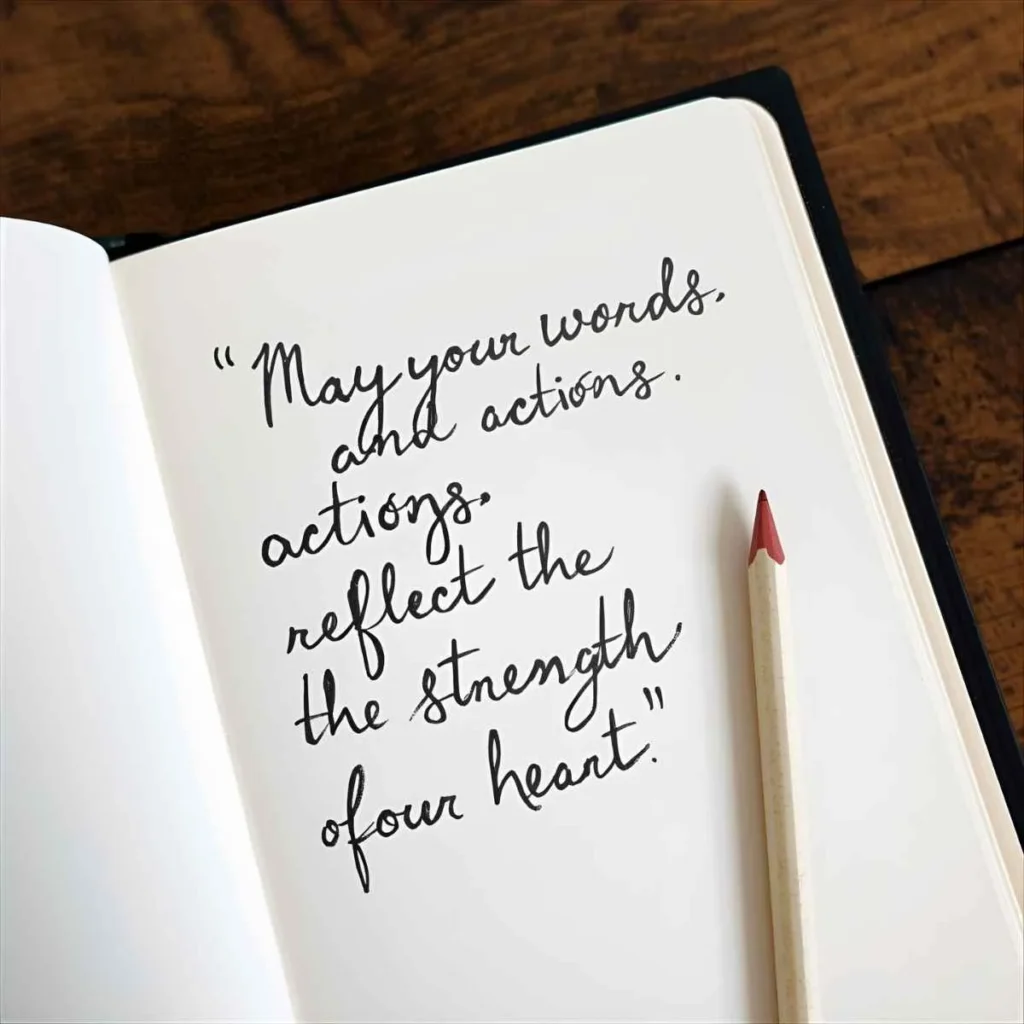 “May your words,
and actions.
actions.
reflect the
the strength
ofour heart.”